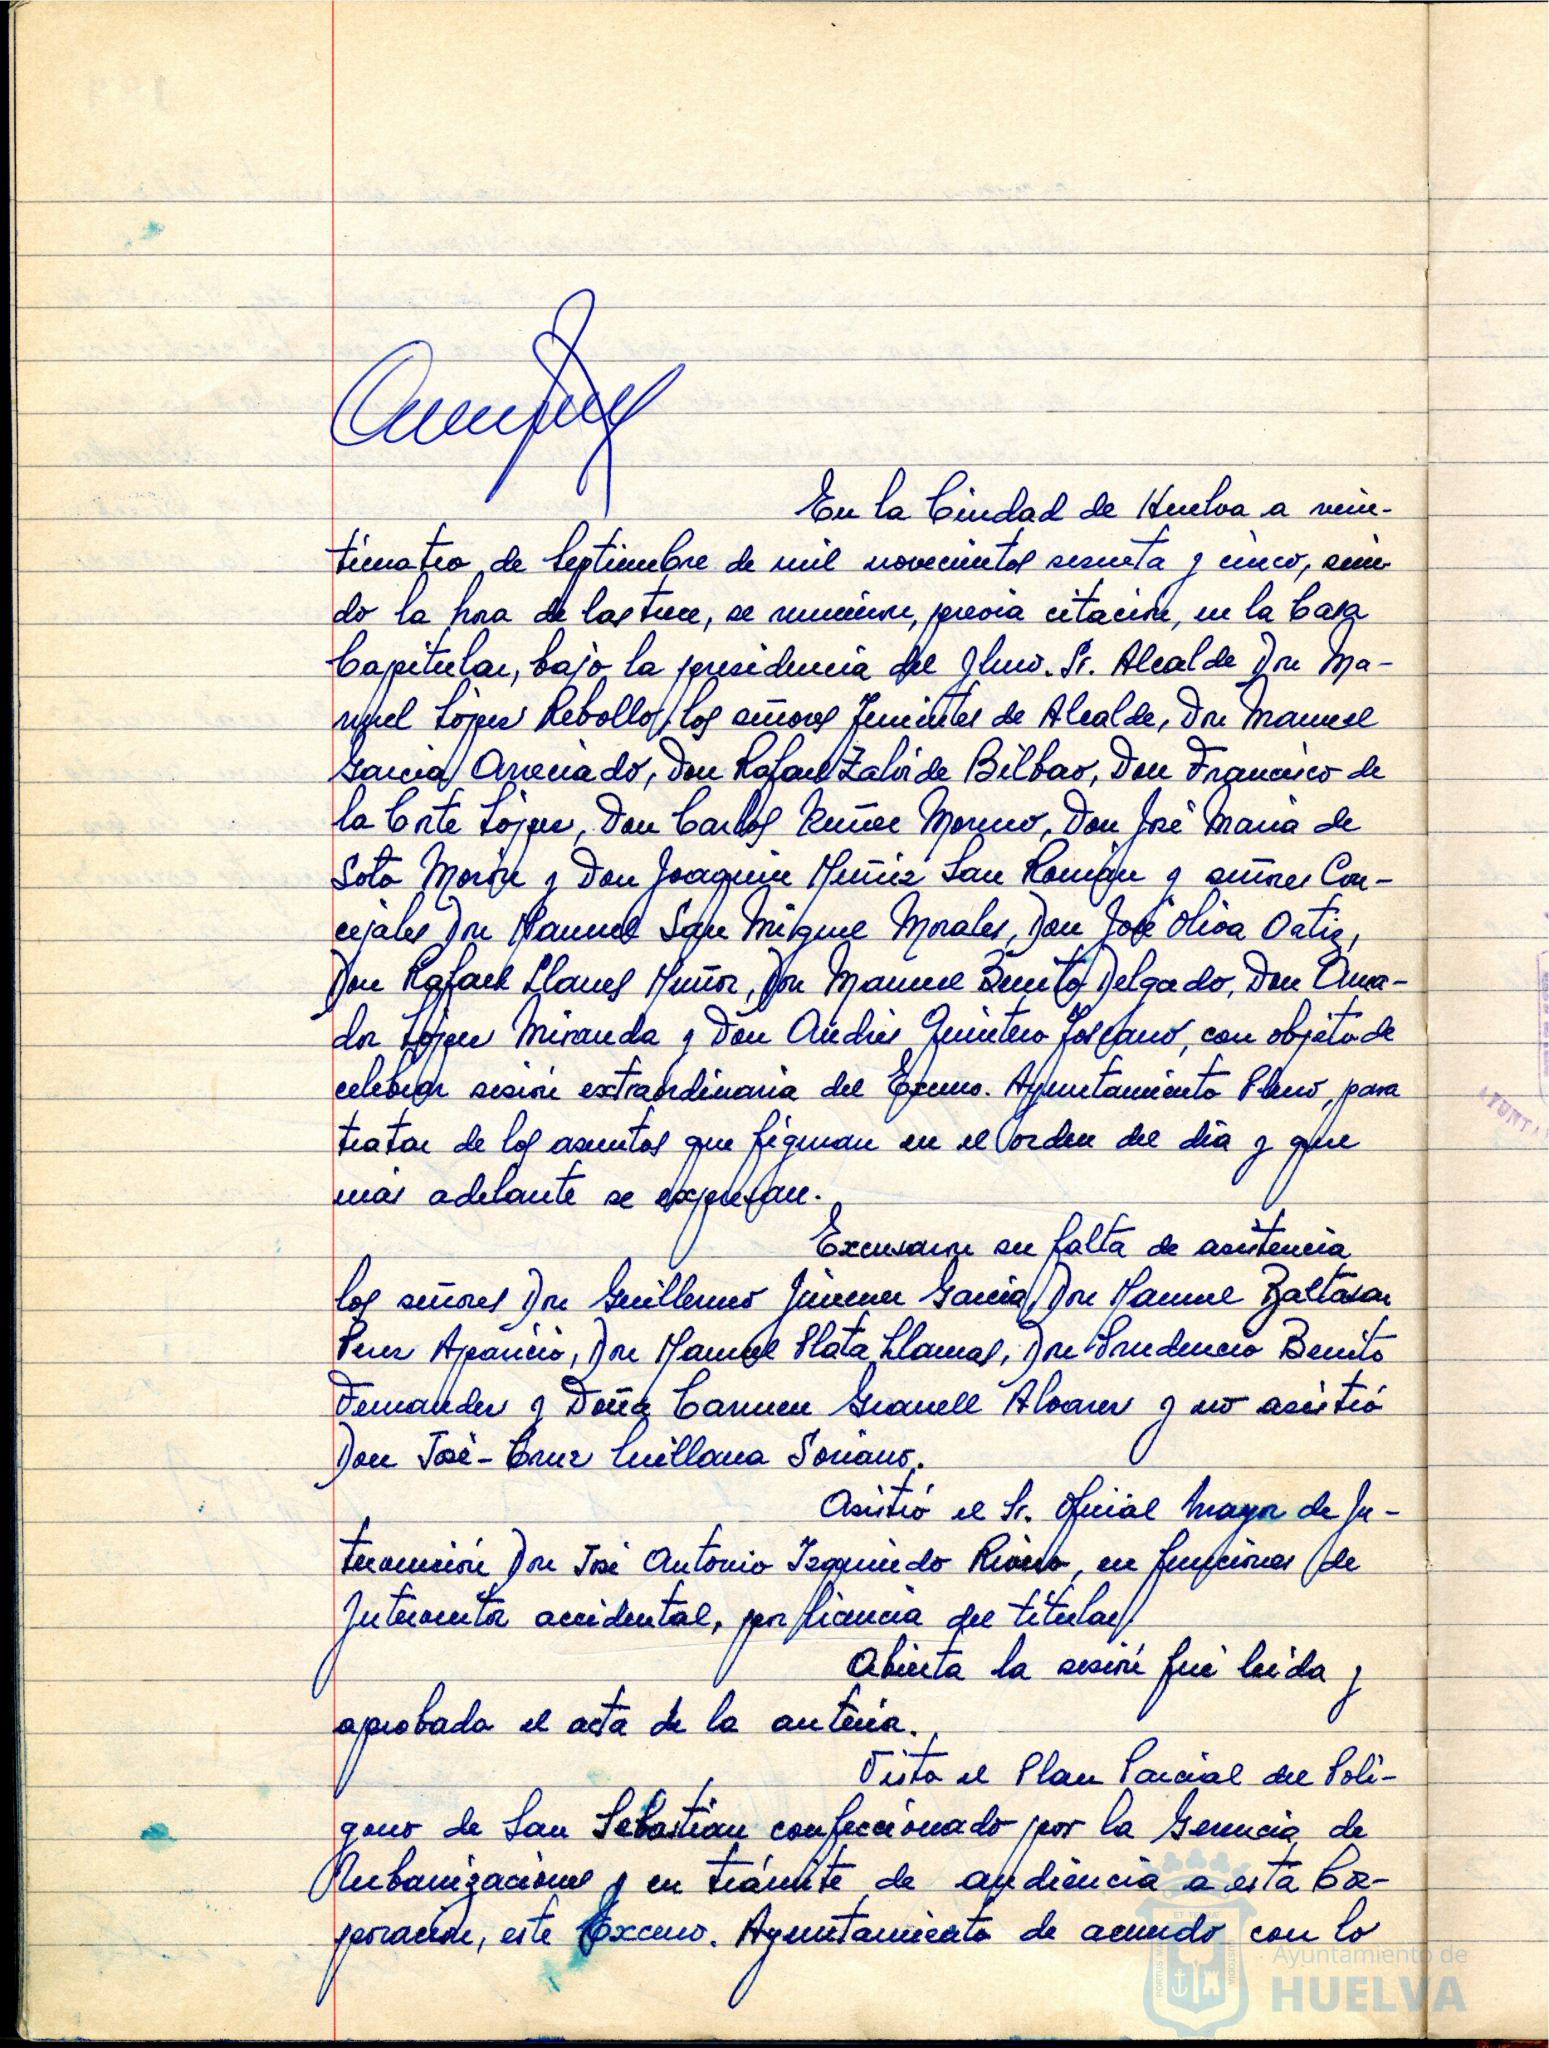 En la Ciudad de Huelva a vein-
ticuatro de Septiembre de mil novecientos sesenta y cinco, sien-
do la hora de las trece, se reunieron, previa citación, en la Casa
Capitular, bajo la presidencia del Ilmo. Sr. Alcalde Don Ma-
nuel López Rebollo, los señores Tenientes de Alcalde, Don Manuel
García Arreciado, Don Rafael Zalvide Bilbao, Don Francisco de
la Corte López, Don Carlos Núñez Moreno, Don José María de
Soto Morón y Don Joaquin Muñiz San Román y señores Con-
cejales Don Manuel San Miguel Morales, Don José Oliva Ortiz,
Don Rafael Llanes Muñoz, Don Manuel Benito Delgado, Don Ama-
dor López Miranda y Don Andrés Quintero Toscano, con objeto de
celebrar sesión extraordinaria del Excmo. Ayuntamiento Pleno, para
tratar de los asuntos que figuran en el orden del día y que
más adelante se expresan.
Excusaron su falta de asistencia
los señores Don Guillermo Jimenez García, Don Manuel Baltasar
Perez Aparicio, Don Manuel Plata Llamas, Don Prudencio Benito
Fernandez y Doña Carmen Granell Alvarez y no asistió
Don José-Cruz Quillana Soriano.
Asistió el Sr. Oficial Mayor de In-
tervención Don José Antonio Izquierdo Rivero, en funciones de
Interventor accidental, por licencia del titular.
Abierta la sesión fué leida y
aprobada el acta de la anterior.
Visto el Plan Parcial del Polí-
gono de San Sebastián confeccionado por la Gerencia de
Urbanizaciones y en trámite de audiencia a esta Cor-
poración, este Excmo. Ayuntamiento de acuerdo con lo
Ayuntamiento de
HUELVA